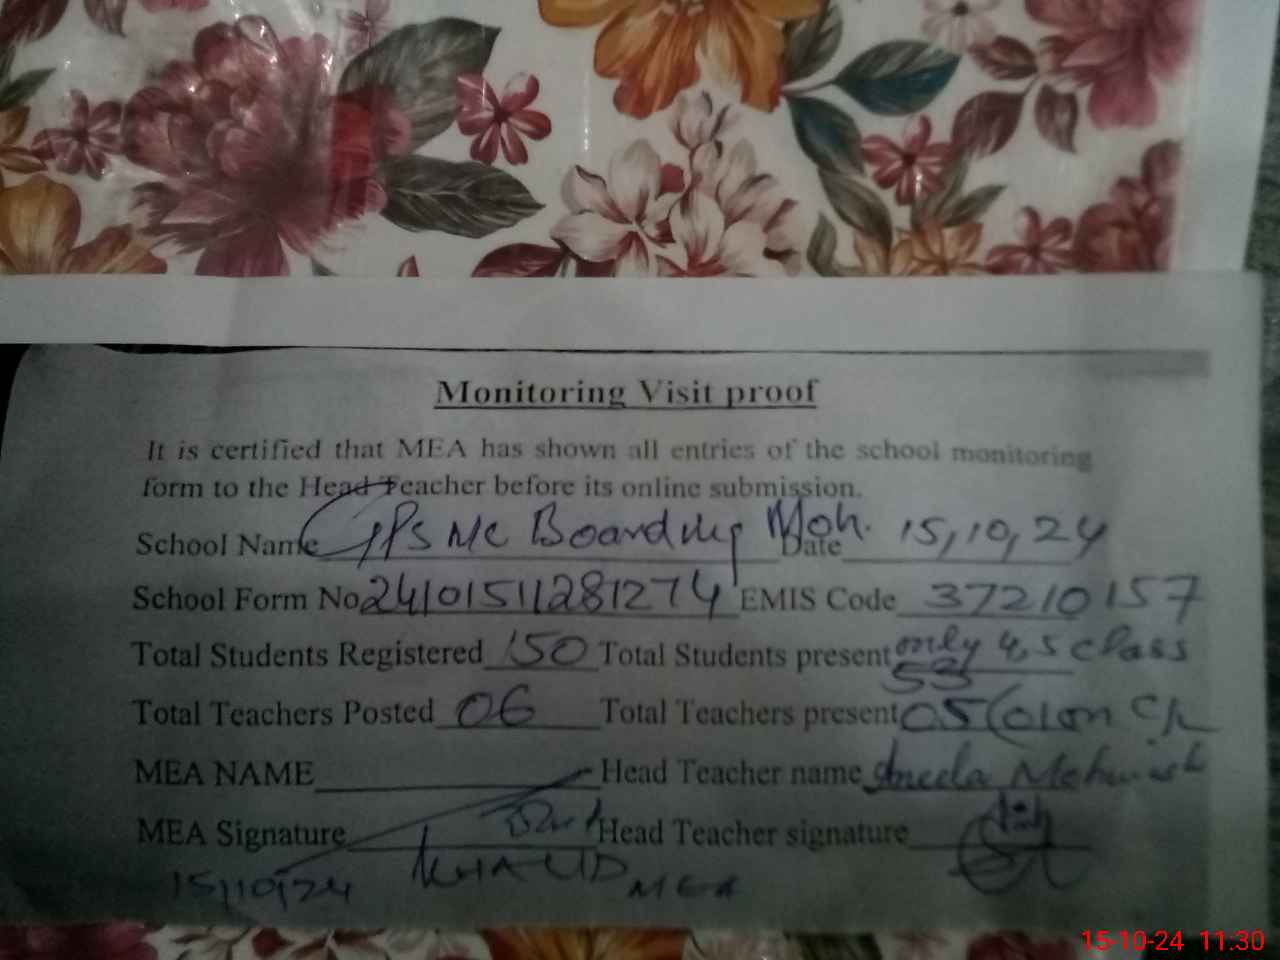 Monitoring Visit proof
It is certified that MEA has shown all entries of the school monitoring
form to the Head Teacher before its online submission.
School Name GPS MC Boarding Moh. Date 15,10,24
School Form No 24101511281274 EMIS Code 37210157
Total Students Registered 150 Total Students present only 4,5 class
53
Total Teachers Posted 06 Total Teachers present 05 (01 on
MEA NAME Head Teacher name Aneela Mehwish
MEA Signature Head Teacher signature
15/10/24 KHALID MEA
15-10-24 11:30